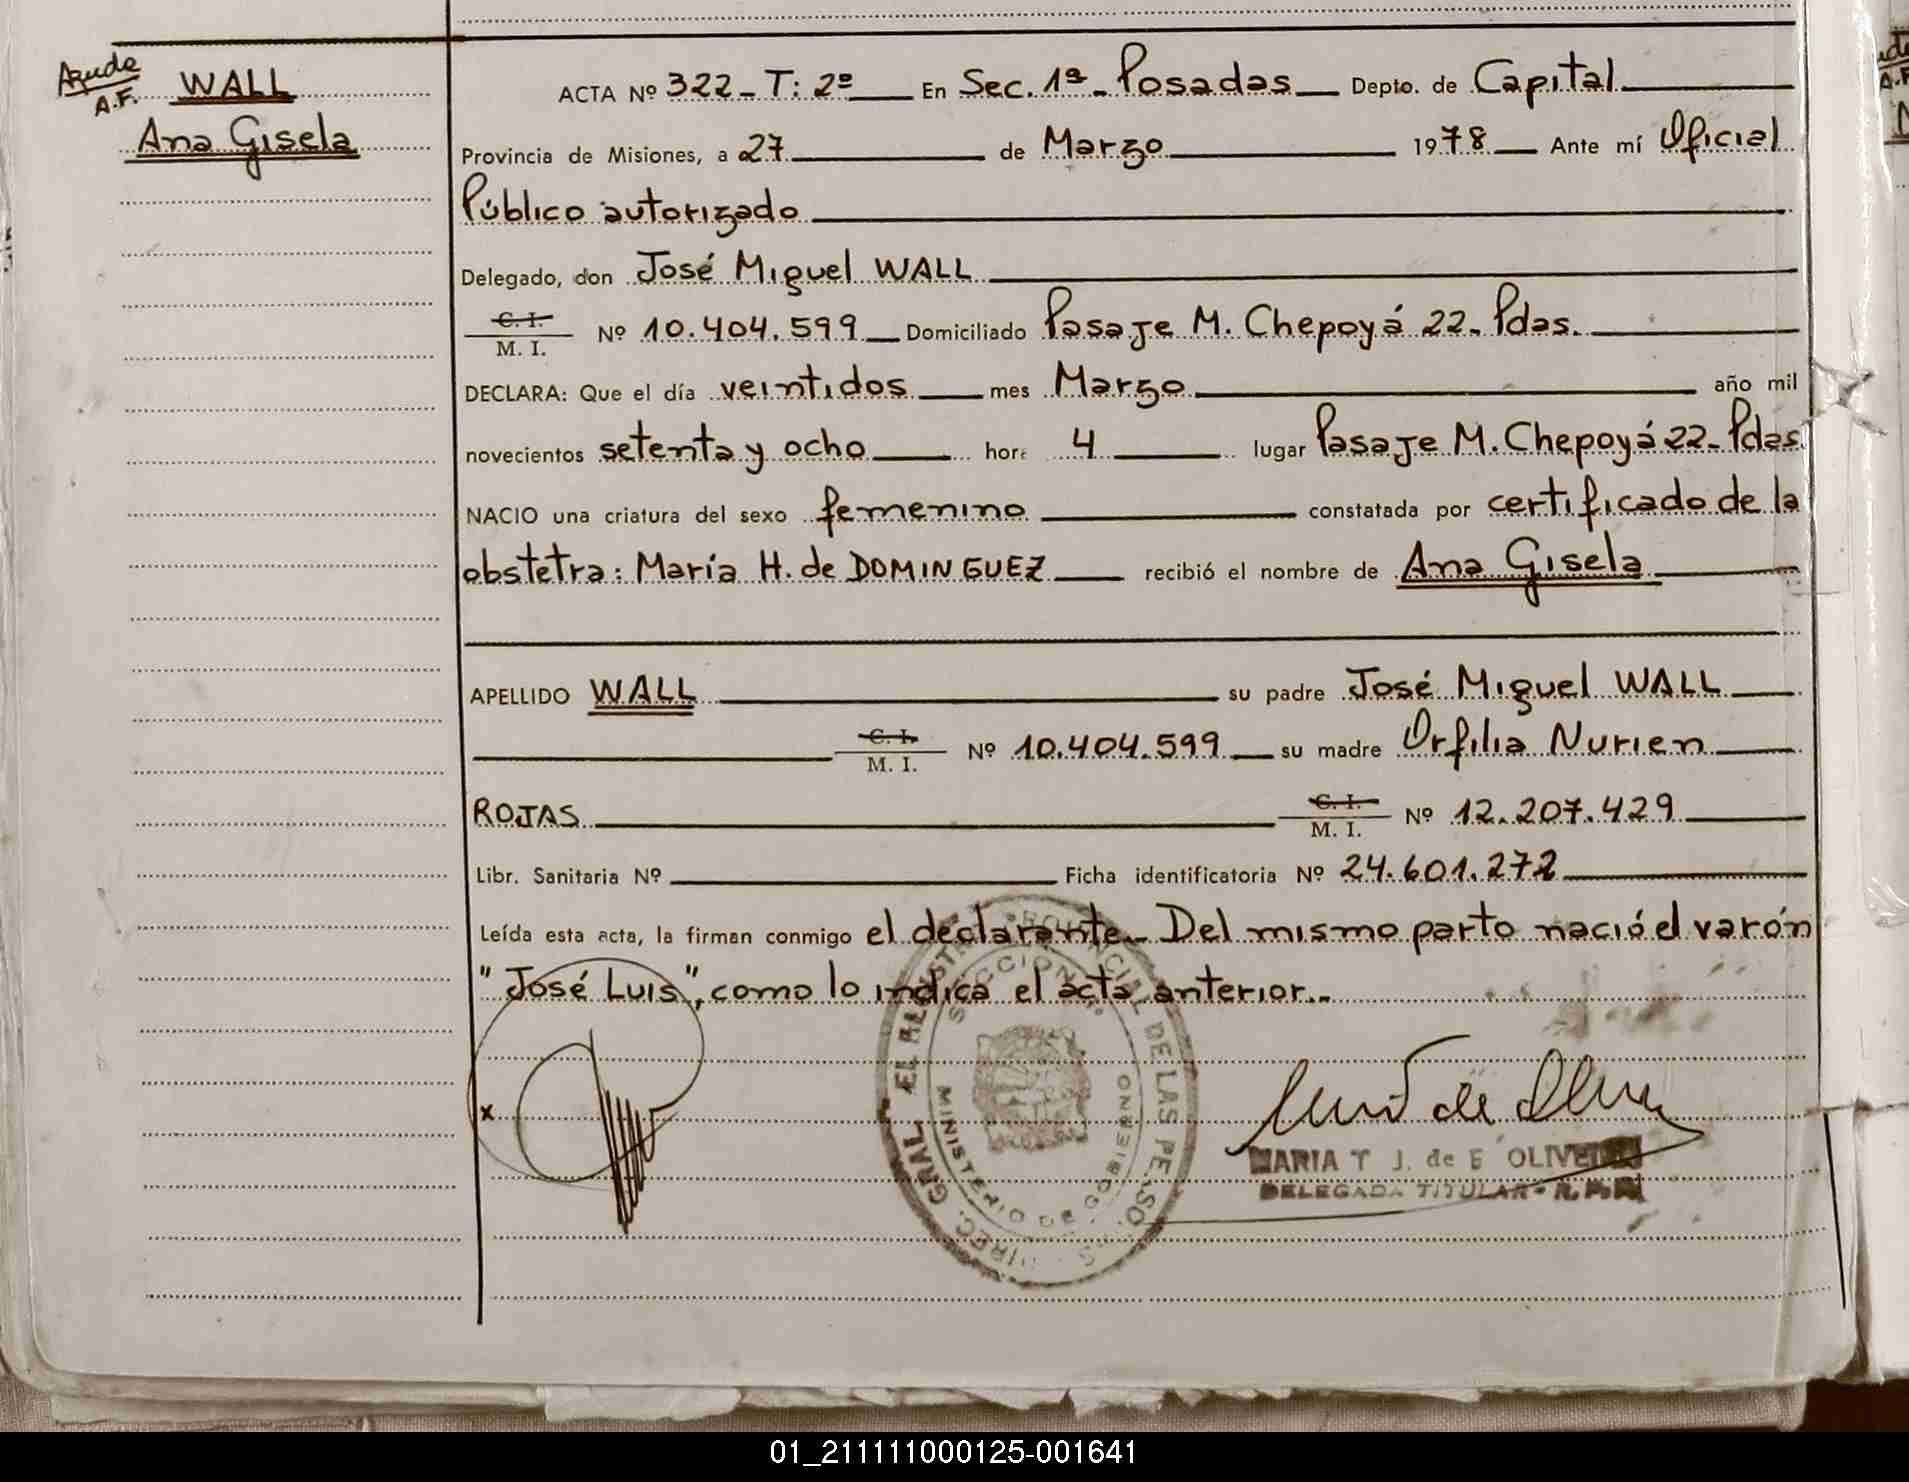 Ayuda
A.F.
WALL
Ana Gisela
ACTA Nº 322 - T: 2º En Sec. 1ª - Posadas Depto. de Capital
Provincia de Misiones, a 27 de Marzo 1978 Ante mí Oficial
Público autorizado
Delegado, don José Miguel WALL
C. I.
M. I. Nº 10.404.599 Domiciliado Pasaje M. Chepoyá 22 - Pdas.
DECLARA: Que el día veintidos mes Marzo año mil
novecientos setenta y ocho hora 4 lugar Pasaje M. Chepoyá 22 - Pdas.
NACIO una criatura del sexo femenino constatada por certificado de la
obstetra: María H. de DOMINGUEZ recibió el nombre de Ana Gisela
APELLIDO WALL su padre José Miguel WALL
C. I.
M. I. Nº 10.404.599 su madre Orfilia Nurien
ROJAS C. I.
M. I. Nº 12.207.429
Libr. Sanitaria Nº Ficha identificatoria Nº 24.601.272
Leída esta acta, la firman conmigo el declarante. Del mismo parto nació el varón
"José Luis", como lo indica el acta anterior.-
x
MINISTERIO DE GOBIERNO
MARIA T J. de E OLIVEIRA
DELEGADA TITULAR - R.P.P.
01_211111000125-001641